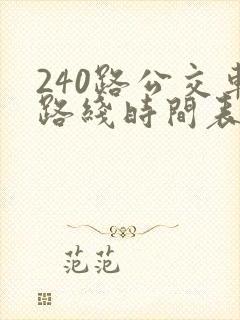 240路公交車
路綫時間表
范范